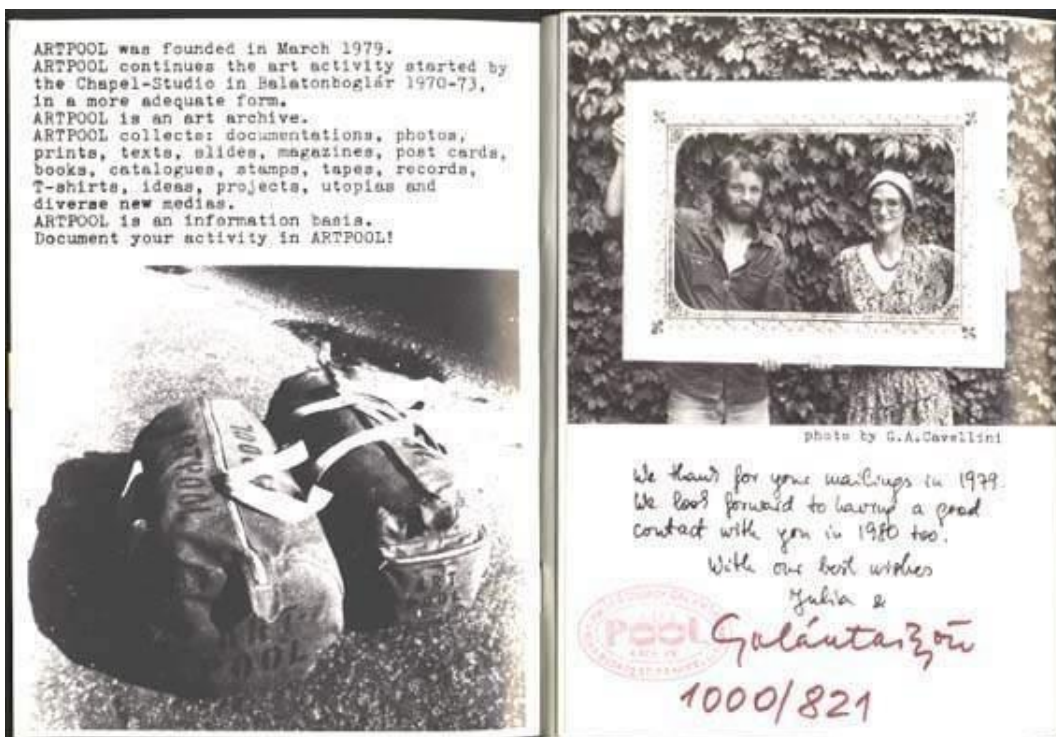 ARTPOOL was founded in March 1979.
ARTPOOL continues the art activity started by
the Chapel-Studio in Balatonboglár 1970-73,
in a more adequate form.
ARTPOOL is an art archive.
ARTPOOL collects: documentations, photos,
prints, texts, slides, magazines, post cards,
books, catalogues, stamps, tapes, records,
T-shirts, ideas, projects, utopias and
diverse new medias.
ARTPOOL is an information basis.
Document your activity in ARTPOOL!
POOL
POOL
photo by G.A.Cavellini
We thank for your mailings in 1979.
We look forward to having a good
contact with you in 1980 too.
With our best wishes
Julia &
Galántai György
POOL
1000/821